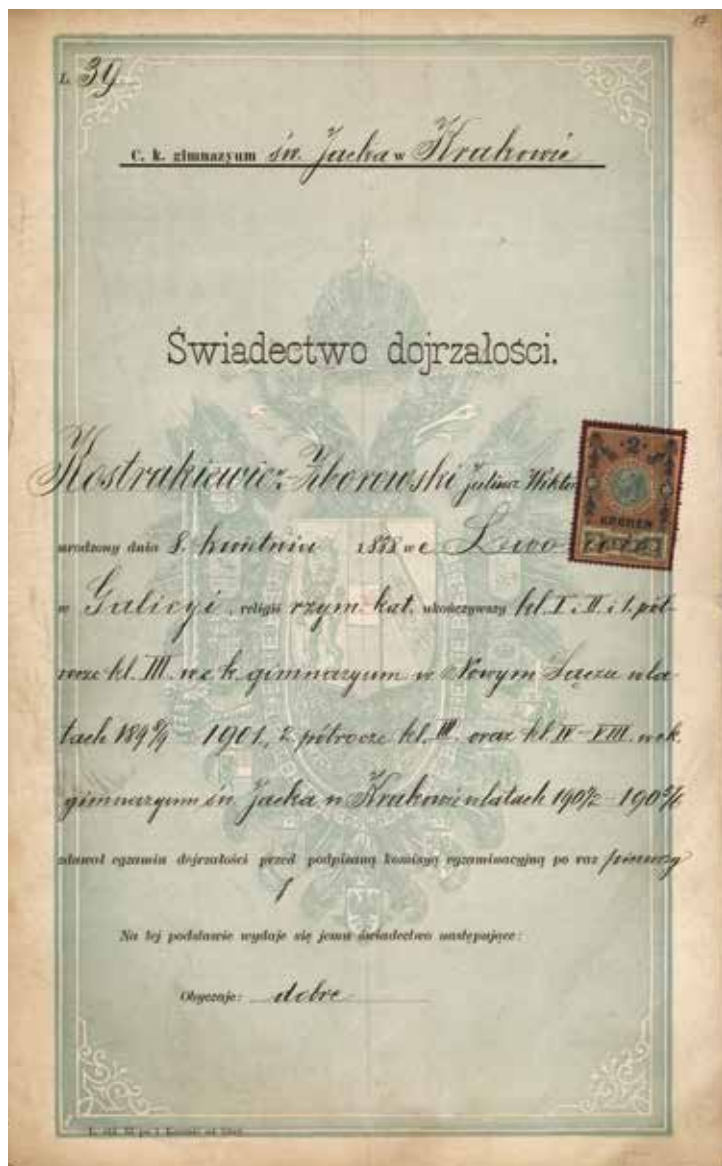 17
L. 39
C. k. gimnazyum św. Jacka w Krakowie
Świadectwo dojrzałości.
Kostrakiewicz-Zborowski Juliusz Wiktor
2
KRONEN
urodzony dnia 8. kwietnia 1888 we Lwo
w Galicyi, religii rzym. kat. ukończywszy kl. I. i II. i 1. pół-
rocze kl. III. w c. k. gimnazyum w Nowym Sączu w la-
tach 1898/9 - 1901., 2. półrocze kl. III. oraz kl. IV - VIII. w c. k.
gimnazyum św. Jacka w Krakowie w latach 1901/2 - 1905/6
zdawał egzamin dojrzałości przed podpisaną komisyą egzaminacyjną po raz pierwszy
Na tej podstawie wydaje się jemu świadectwo następujące:
Obyczaje: dobre